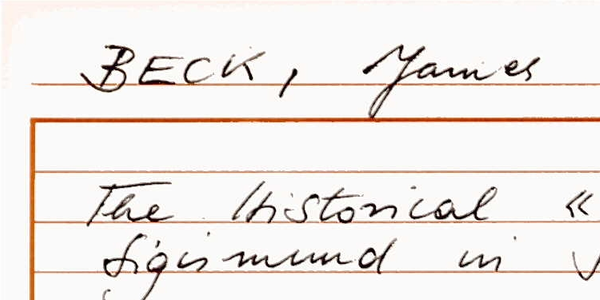 BECK, James
The Historical «
Sigismund in